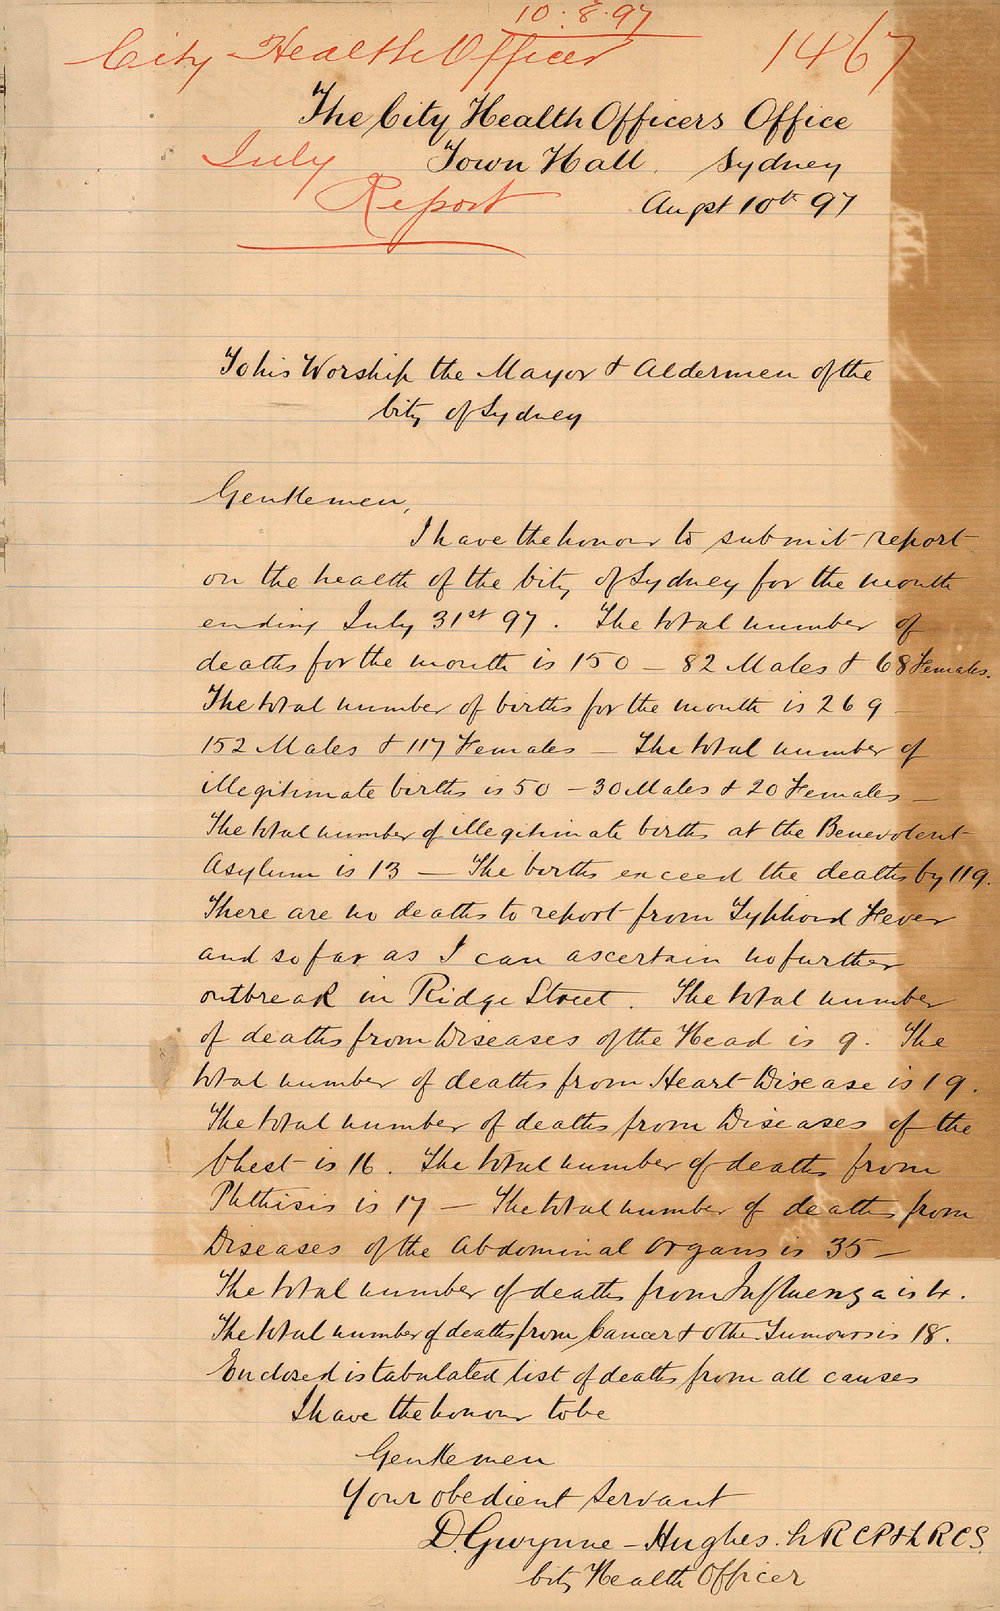 10.8.97
City Health Officer 1467
The City Health Officers Office
July Town Hall. Sydney
Report Augst 10th 97
To his Worship the Mayor & Aldermen of the
City of Sydney
Gentlemen,
I have the honour to submit report
on the health of the City of Sydney for the month
ending July 31st 97. The total number of
deaths for the month is 150 – 82 Males & 68 Females.
The total number of births for the month is 269 –
152 Males & 117 Females – The total number of
illegitimate births is 50 – 30 Males & 20 Females –
The total number of illegitimate births at the Benevolent
Asylum is 13 – The births exceed the deaths by 119.
There are no deaths to report from Typhoid Fever
and so far as I can ascertain no further
outbreak in Ridge Street. The total number
of deaths from Diseases of the Head is 9. The
total number of deaths from Heart Disease is 19.
The total number of deaths from Diseases of the
Chest is 16. The total number of deaths from
Phthisis is 17 – The total number of deaths from
Diseases of the Abdominal Organs is 35 –
The total number of deaths from Influenza is 4.
The total number of deaths from Cancer & other Tumours is 18.
Enclosed is tabulated list of deaths from all causes
I have the honour to be
Gentlemen
Your obedient servant
D. Gwynne-Hughes. LRCP & LRCS.
City Health Officer